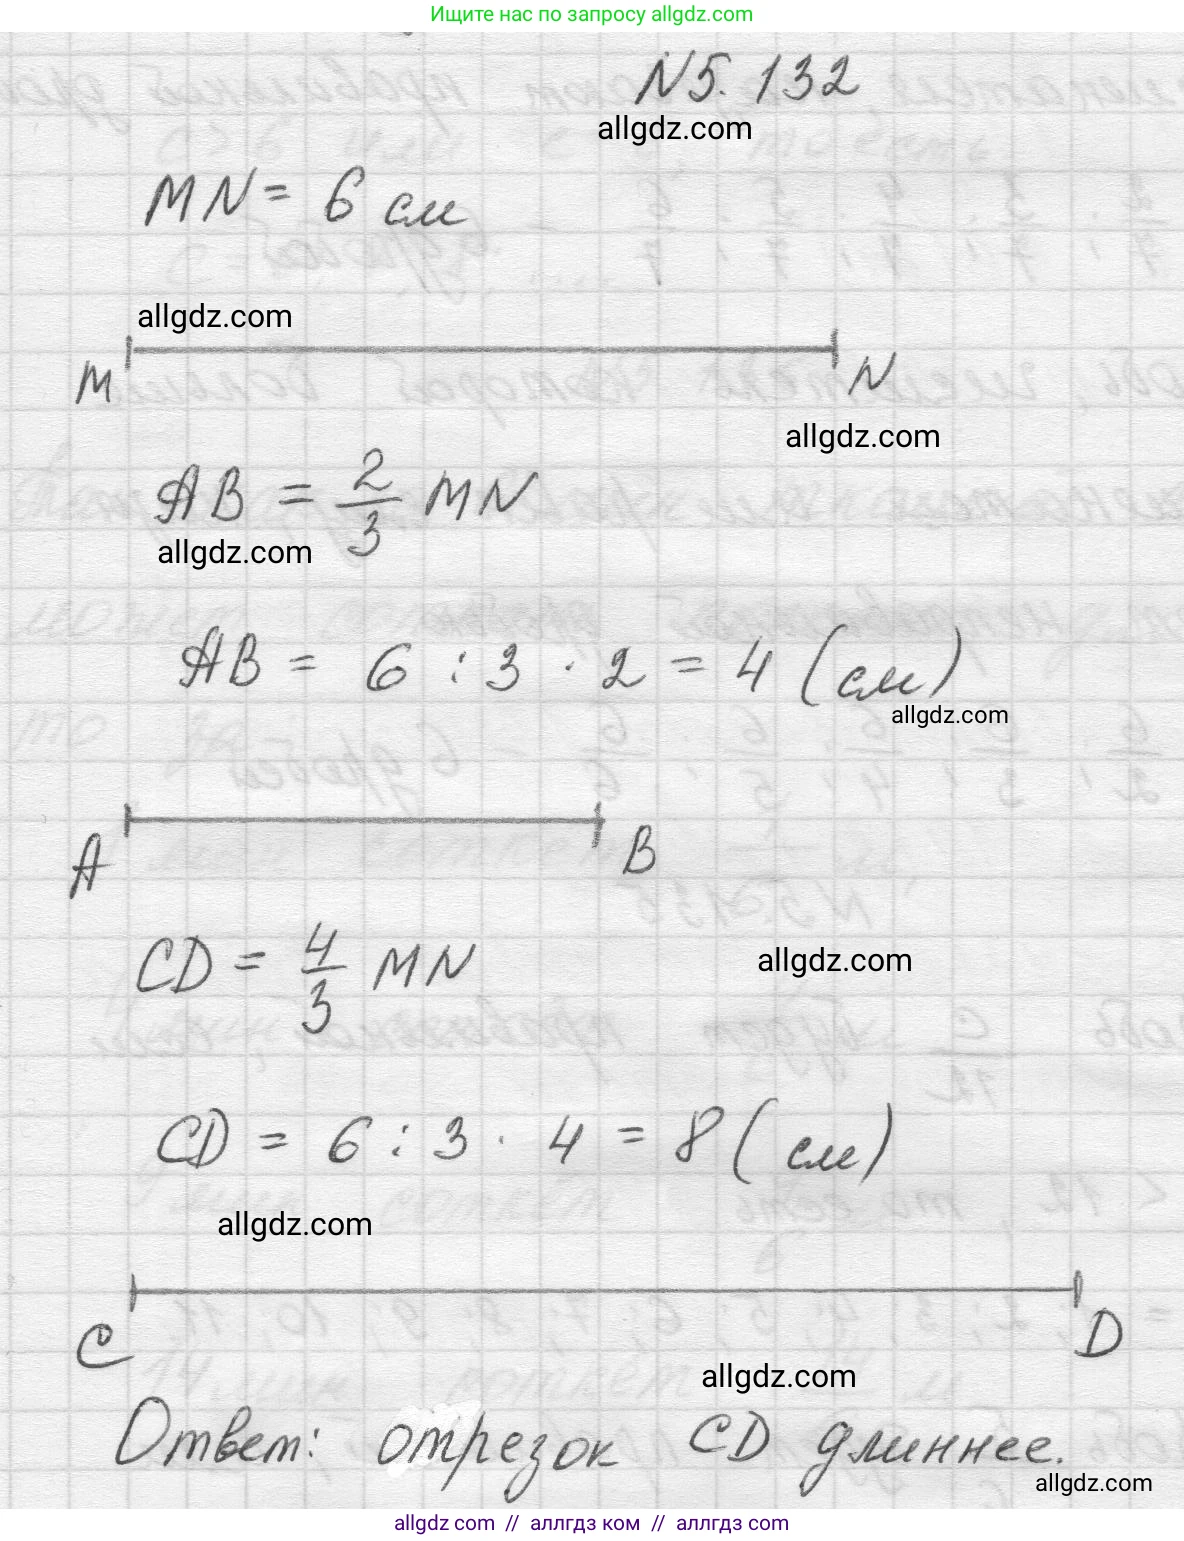 Ищите нас по запросу allgdz.com
N5.132
allgdz.com
MN = 6 см
allgdz.com
M N
allgdz.com
AB = 2/3 MN
allgdz.com
AB = 6 : 3 · 2 = 4 (см)
allgdz.com
A B
CD = 4/3 MN
allgdz.com
CD = 6 : 3 · 4 = 8 (см)
allgdz.com
C D
allgdz.com
Ответ: отрезок CD длиннее.
allgdz.com
allgdz com // аллгдз ком // allgdz com